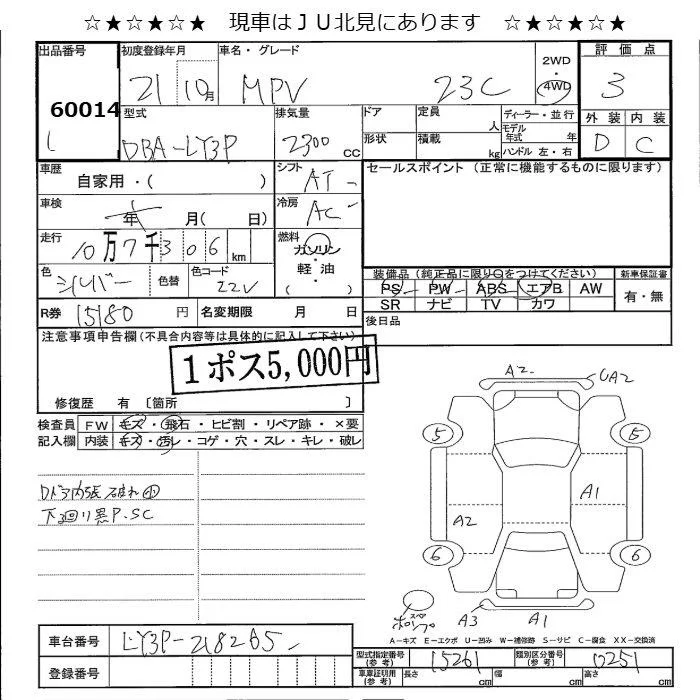 ☆★☆★☆★ 現車はＪＵ北見にあります ☆★☆★☆★
出品番号 初度登録年月 車名・グレード 2WD 評価点
60014 21 10月 MPV 23C 4WD 3
型式 排気量 ドア 定員 人 ディーラー・並行 外装 内装
DBA-LY3P 2300 CC 形状 積載 kg モデル年式 年 D C
ハンドル 左・右
車歴 自家用・( ) シフト AT セールスポイント (正常に機能するものに限ります)
車検 年 月( 日) 冷房 AC
走行 10万7千306km 燃料 ガソリン
軽・油
( )
色 シルバー 色替 色コード 22V 装備品(純正品に限り○をつけてください) 新車保証書
PS PW ABS エアB AW 有・無
SR ナビ TV カワ
R券 15180円 名変期限 月 日 後日品
注意事項申告欄(不具合内容等は具体的に記入して下さい)
1ポス5,000円
修復歴 有 〔箇所 〕
検査員記入欄 FW キズ・飛石・ヒビ割・リペア跡・×要
内装 キズ・汚レ・コゲ・穴・スレ・キレ・破レ
Dドア内張破れ
下廻り黒P.SC
A2 UA2
5 5
A1
A2
6 6
スペ
A3 A1
A－キズ E－エクボ U－凹み W－補修跡 S－サビ C－腐食 XX－交換済
車台番号 LY3P-218265
登録番号
型式指定番号(参考) 15261 類別区分番号(参考) 0251
車庫証明用(参考) 長さ cm 幅 cm 高さ cm